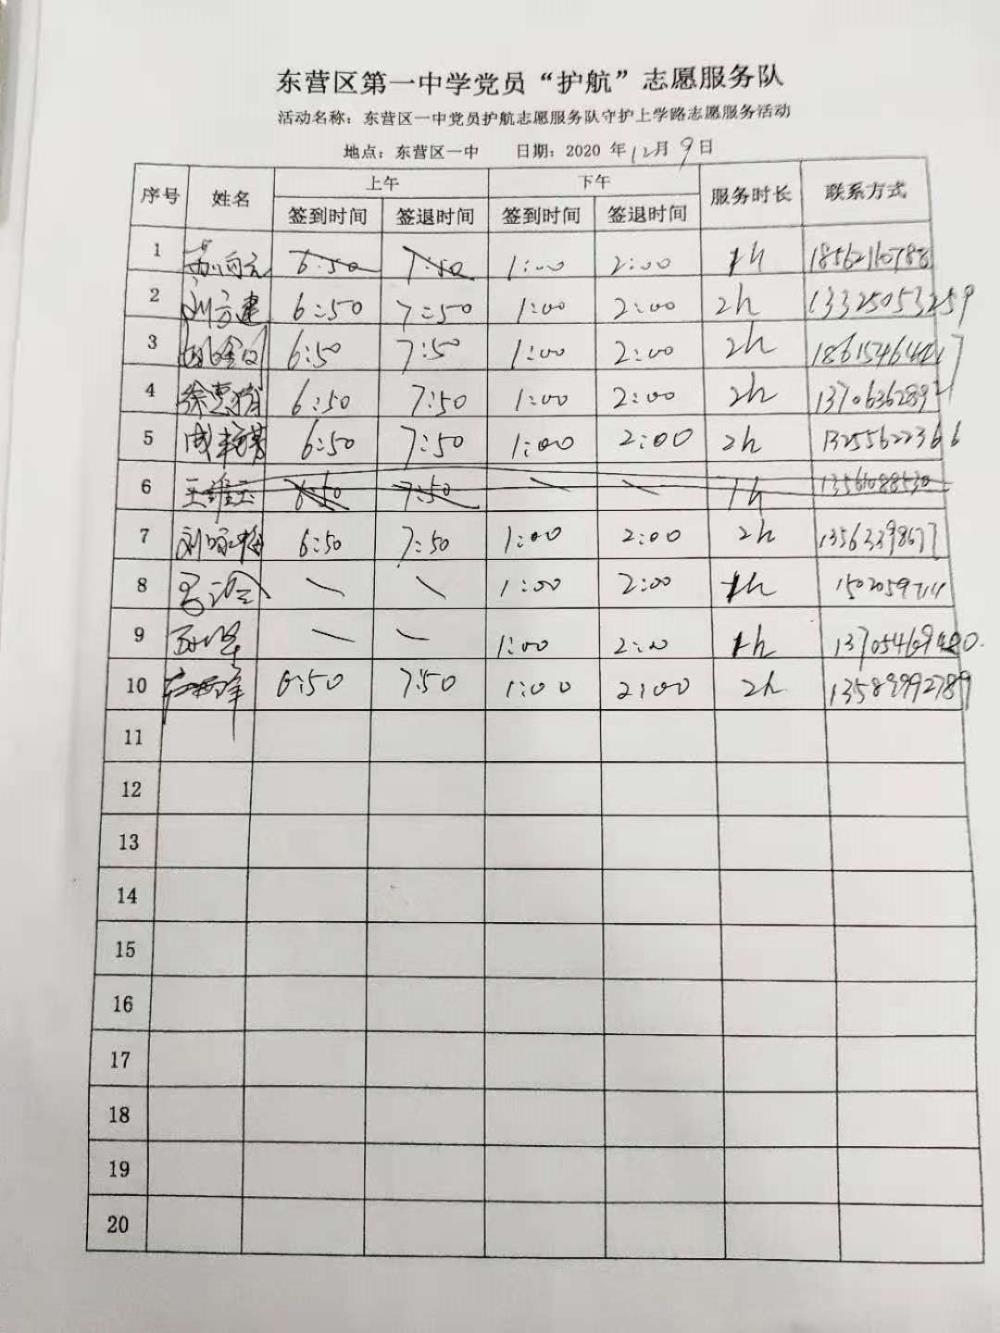 东营区第一中学党员“护航”志愿服务队
活动名称：东营区一中党员护航志愿服务队守护上学路志愿服务活动
地点：东营区一中 日期：2020 年 12月 9日
序号 姓名 上午 下午 服务时长 联系方式
签到时间 签退时间 签到时间 签退时间
1 6:50 7:50 1:00 2:00 1h
2 6:50 7:50 1:00 2:00 2h 13325053259
3 6:50 7:50 1:00 2:00 2h
4 徐 6:50 7:50 1:00 2:00 2h
5 周 6:50 7:50 1:00 2:00 2h 13255622366
6 王 6:50 7:50 1h
7 刘 6:50 7:50 1:00 2:00 2h
8 1:00 2:00 1h
9 1:00 2:00 1h
10 6:50 7:50 1:00 2:00 2h 13589992789
11
12
13
14
15
16
17
18
19
20